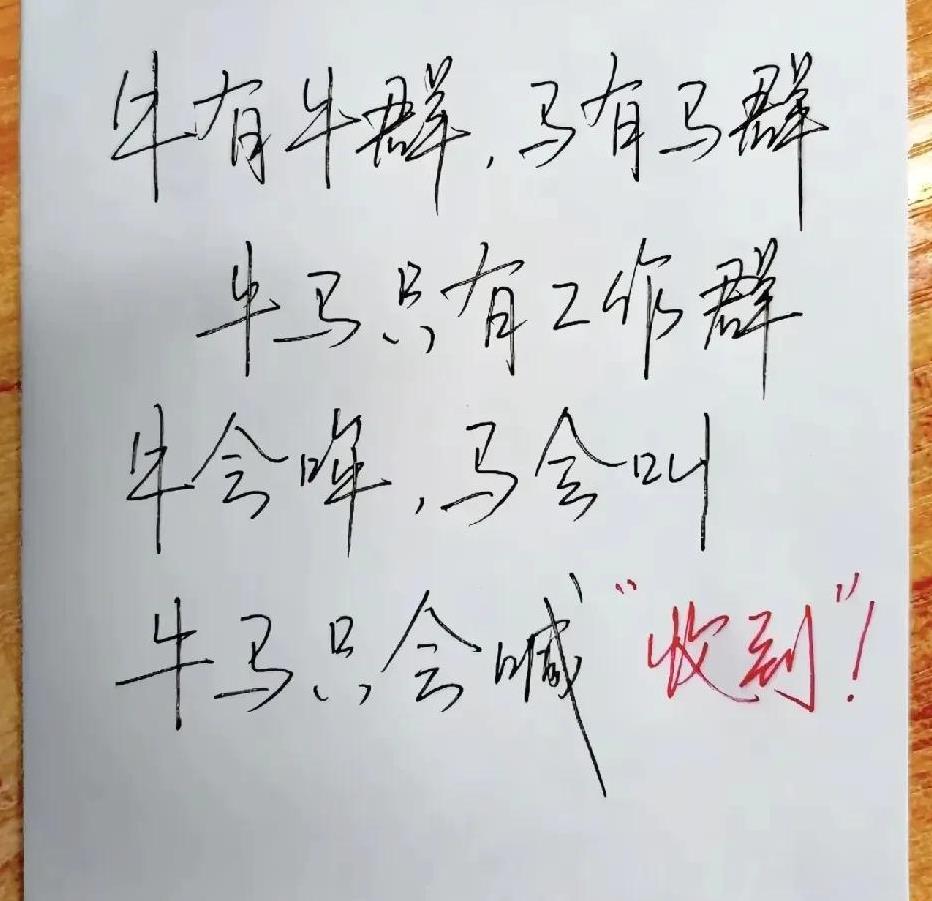 牛有牛群,马有马群
牛马只有工作群
牛会哞,马会叫
牛马只会喊“收到”!